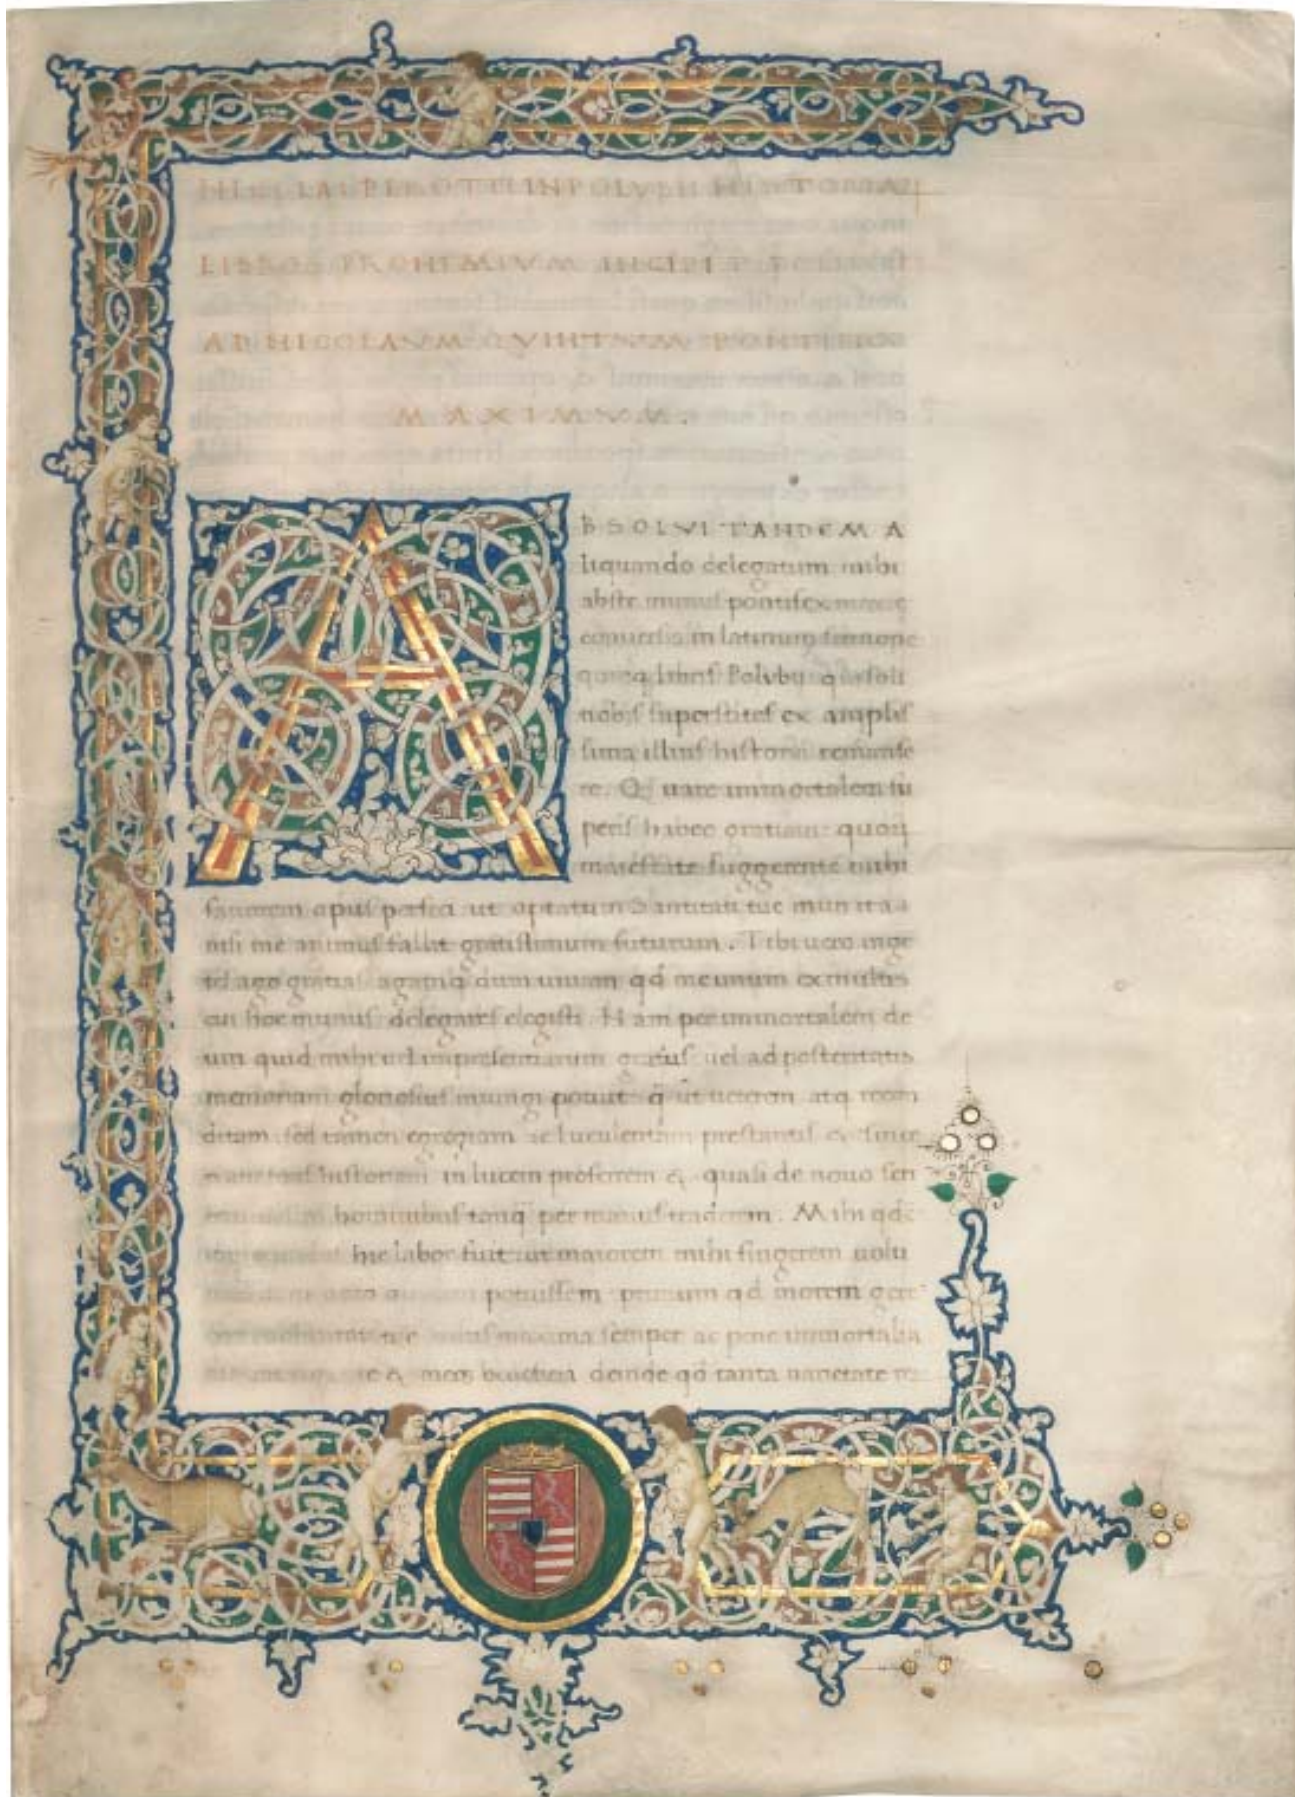 NICOLAI PEROTTI IN POLYBII HISTORIA
LIBROS PROHEMIVM INCIPIT
AD NICOLAVM QVINTVM PONTIFICE
MAXIMVM.
ABSOLVI TANDEM A
liquando delegatum mihi
abste munus pontifex maxe
conuersis in latinum sermone
quinq libris Polybii qui soli
nobis superstites ex amplis
sima illius historia remanse
re. Quare immortalem tu
peris habeo gratiam quorq
maiestate suggerente mihi
opus perfeci ut optatum Santitati tue mun ita a
nisi me animus fallit gratissimum futurum. Tibi uero inge
tes ago gratias agamq dum uiuam qd me unum ex multis
cui hoc munus delegares elegisti. Nam per immortalem de
um quid mihi uel impresentiarum gratius uel ad posteritatis
memoriam gloriosius iniungi potuit q ut ueterem atq recon
ditam sed tamen egregiam ac luculentam prestantis
historiam in lucem proferrem & quasi de nouo
hominibus tanq per manus traderem. Mihi qde
hic labor fuit ut maiorem mihi fingerem uolu
potuissem primum qd morem gere
maxima semper ac pene immortalia
& meos beneficia deinde qd tanta uarietate re